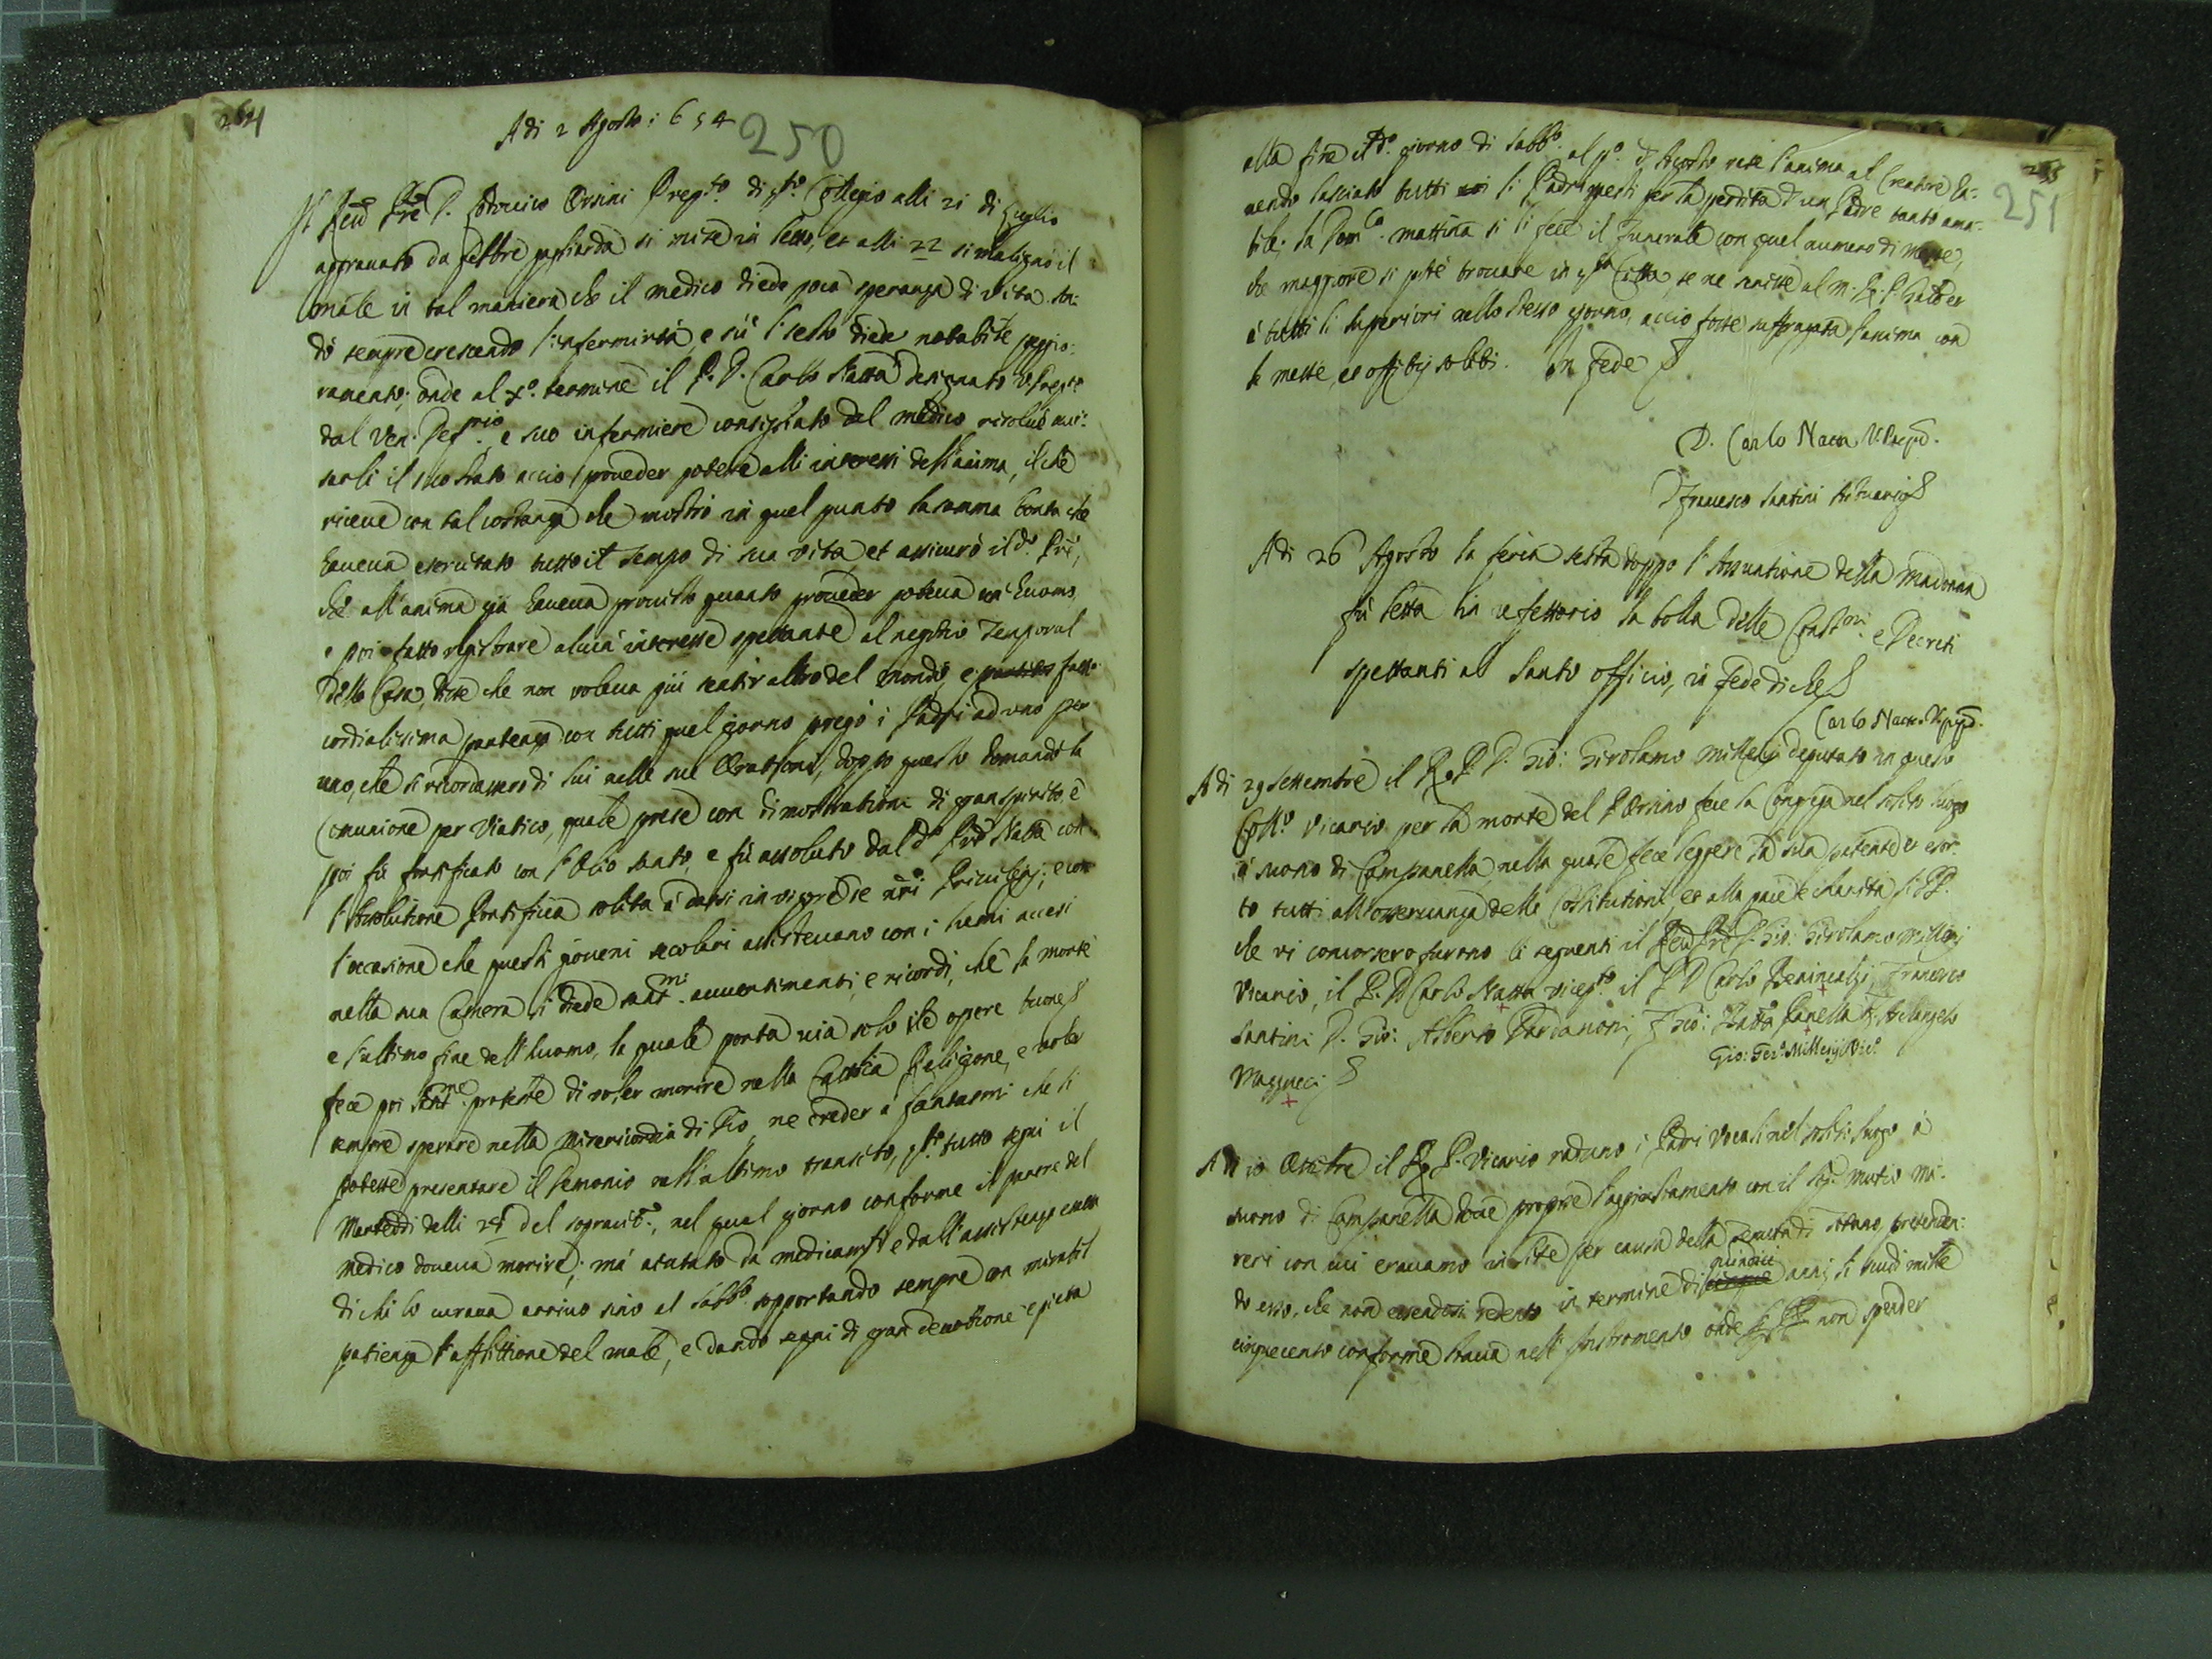 264
Adi 2 Agosto 1654
250
Il Reud Pre D. Lodouico Orsini Prep.to di q.to Collegio alli 21 di Luglio
aggrauato da febbre gagliarda si mise in letto, et alli 22 si malignò il
male in tal maniera che il medico diede poca speranza di vita. An:
dò sempre crescendo l'infermità, e sù l sesto diede notabile peggio:
ramento; onde al x.o termine il P. D. Carlo Natta designato V. Prep.to
dal Ven. Def.rio e suo infermiere consigliato dal medico risoluè aui:
sarli il suo stato acciò proueder potesse alli interessi dell'anima, il che
riceuè con tal costanza che mostrò in quel punto la summa bontà che
haueua esercitato tutto il tempo di sua vita, et assicurò il d.o Pre,
che all'anima già haueua prouisto quanto proueder poteua un huomo,
e poi fatto registrare alcun interesse spettante al negotio Temporal
della Casa, disse che non voleua più sentir altro del mondo, e fatta
cordialissima partenza con tutti quel giorno pregò i Padri ad uno per
uno, che si ricordassero di lui nelle sue Orationi, doppo questo domandò la
Comunione per Viatico, quale prese con dimostratione di gran spirito, e
poi fù fortificato con l'Olio santo, e fù assoluto dal d.o Pre Natta con
l'Assolutione Pontificia solita à darsi in vigore de nri Priuilegij; e con
l'occasione che questi gioueni secolari assisteuano con i lumi accesi
nella sua Camera li diede sant.mi auuertimenti, e ricordi, che la morte
è l'ultimo fine dell'huomo, la quale porta uia solo le opere buone
fece poi sant.me proteste di voler morire nella Cattolica Religione, e voler
sempre sperare nella Misericordia di Dio ne creder à fantasmi che li
potesse presentare il Demonio nell'ultimo transito, q.to tutto seguì il
Martedì delli 28 del sopracit.o, nel qual giorno conforme il parere del
medico doueua morire; mà aiutato da medicam.ti e dall'assistenza
di chi lo curaua arriuò sino al Sabb.o sopportando sempre con mirabil
patienza l'afflittione del male, e dando segni di gran deuotione e pietà
265
251
alla fine il d.o giorno di Sabb.o al p.o d'Agosto rese l'anima al Creatore ha:
uendo lasciato tutti li Padri mesti per la perdita d'un Padre tanto ama:
bile; la Dom.ca mattina si li fece il Funerale con quel numero di messe,
che maggiore si potè trouare in q.ta Città, se ne scrisse al M. R. P. Gnãl et
à tutti li superiori nello stesso giorno, acciò fosse suffragata l'anima con
le messe, et offitij soliti. In fede
D. Carlo Natta V. Prep.
D Francesco Santini Attuario
Adi 26 Agosto la feria sesta doppo l'Assuntione della Madonna
fù letta in refettorio la bolla delle Const.ni e Decreti
spettanti al Santo Officio, in fede di che
Carlo Natta V. prep.
Adi 29 Settembre il R. P. D. Gio: Girolamo Millesij deputato in questo
Coll.o Vicario per la morte del P. Orsino fece la Congrega nel solito luogo
à suono di Campanella, nella quale fece leggere la sua patente et esor:
tò tutti all'osseruanza delle Costitutioni et alla pace e charità li PP.
che vi concorsero furono li seguenti il Reud Pre D. Gio: Girolamo Millesij
Vicario, il P. D Carlo Natta Vicep.to il P D Carlo Benincalzi, Francesco
Santini D. Gio: Alberto Dardanoni, F Gio: Batta Panella F. Archangelo
Gio: Ger.o Millesij Vic.o
Mazzucci
Adi 10 Ottobre il R. P. Vicario radunò i Padri Vocali nel solito luogo à
suono di Campanella doue propose l'aggiustamento con il Sig. Mutio Ma:
reri con cui erauamo in lite per causa della tenuta di preten:
do esso, che non essendosi redento in termine di cinque quindici anni, li scudi mille
cinquecento conforme staua nell'Instromento onde non spender